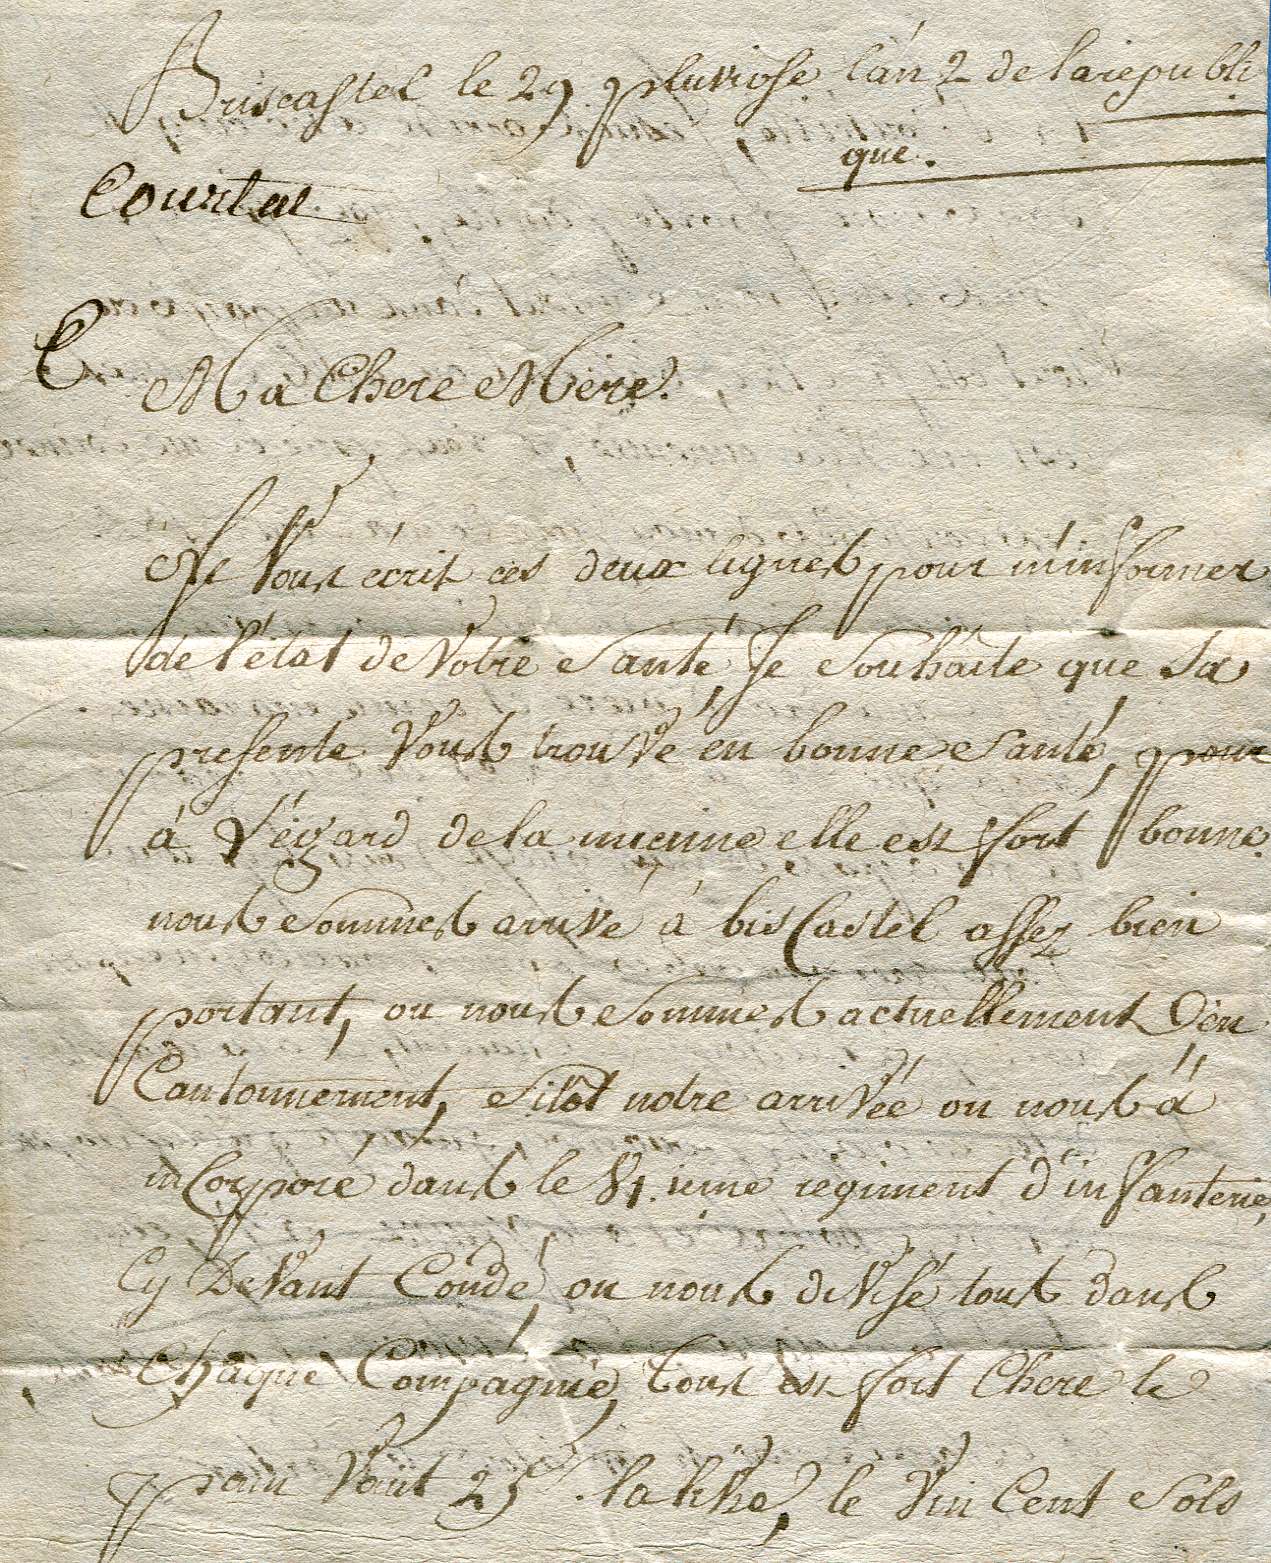 Briscastel le 29 pluviose, l'an 2 de la républi
que.
Courtat
Ma Chere Mere.
Je Vous écrit ces deux lignes pour m'informer
de l'état de Votre Santé, Je Souhaite que Sa
presente Vous trouve en bonne Santé, pour
à l'égard de la mienne elle est fort bonne
nous Sommes arrivé à bisCastel assez bien
portant, ou nous Sommes actuellement en
Cantonnement, Sitôt notre arrivée on nous á
inCorporé dans le ieme regiment d'infanterie,
Cy DeVant Condé, on nous diVisé tous dans
Chaque Compagnie, tous est fort Chere le
pain Vaut 25 la livre, le Vin Cent Sols